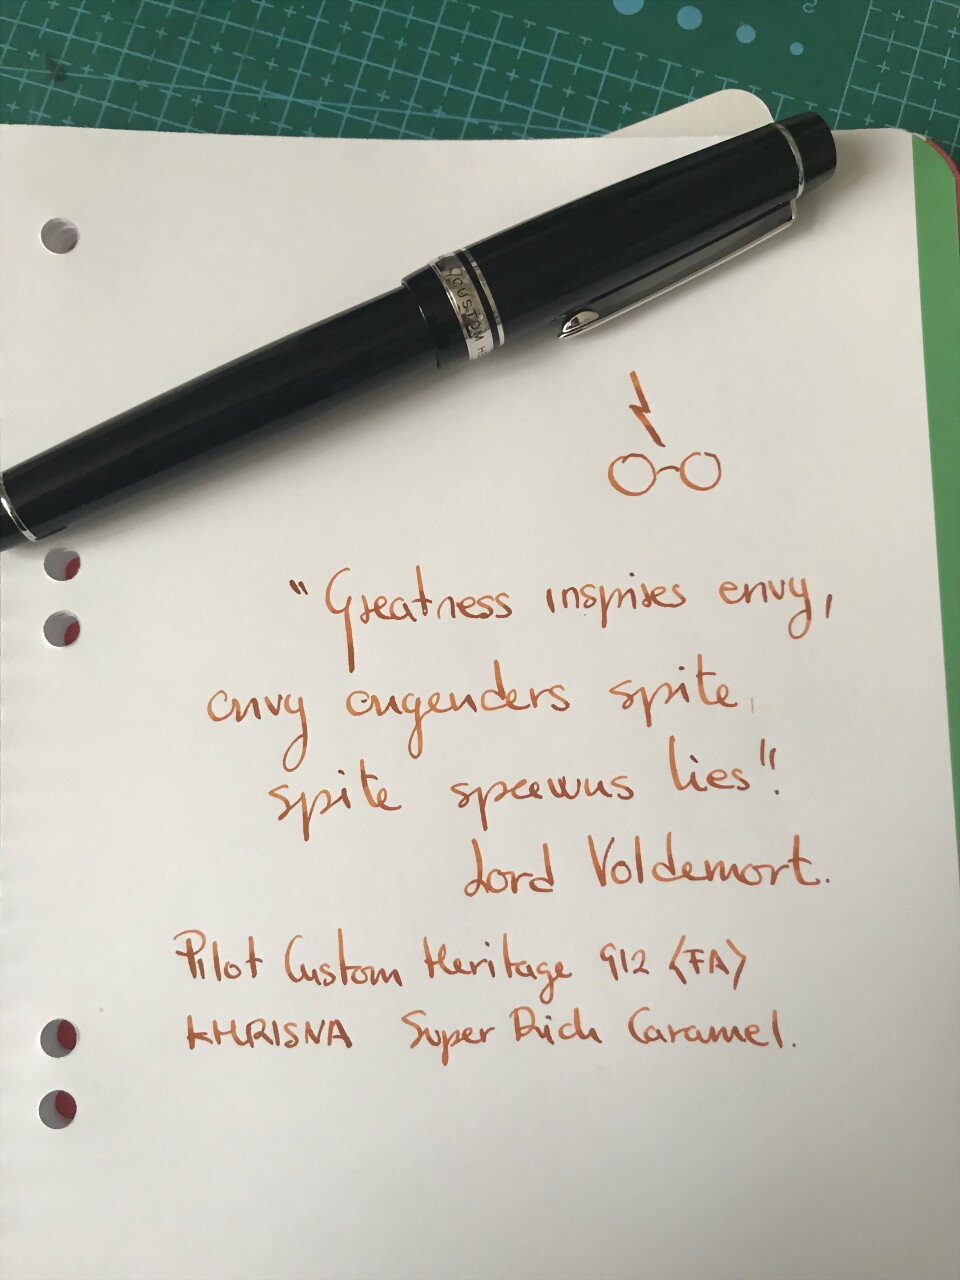 CUSTOM H
"Greatness inspires envy,
envy engenders spite,
spite spawns lies".
Lord Voldemort.
Pilot Custom Heritage 912 <FA>
KHRISNA Super Rich Caramel.